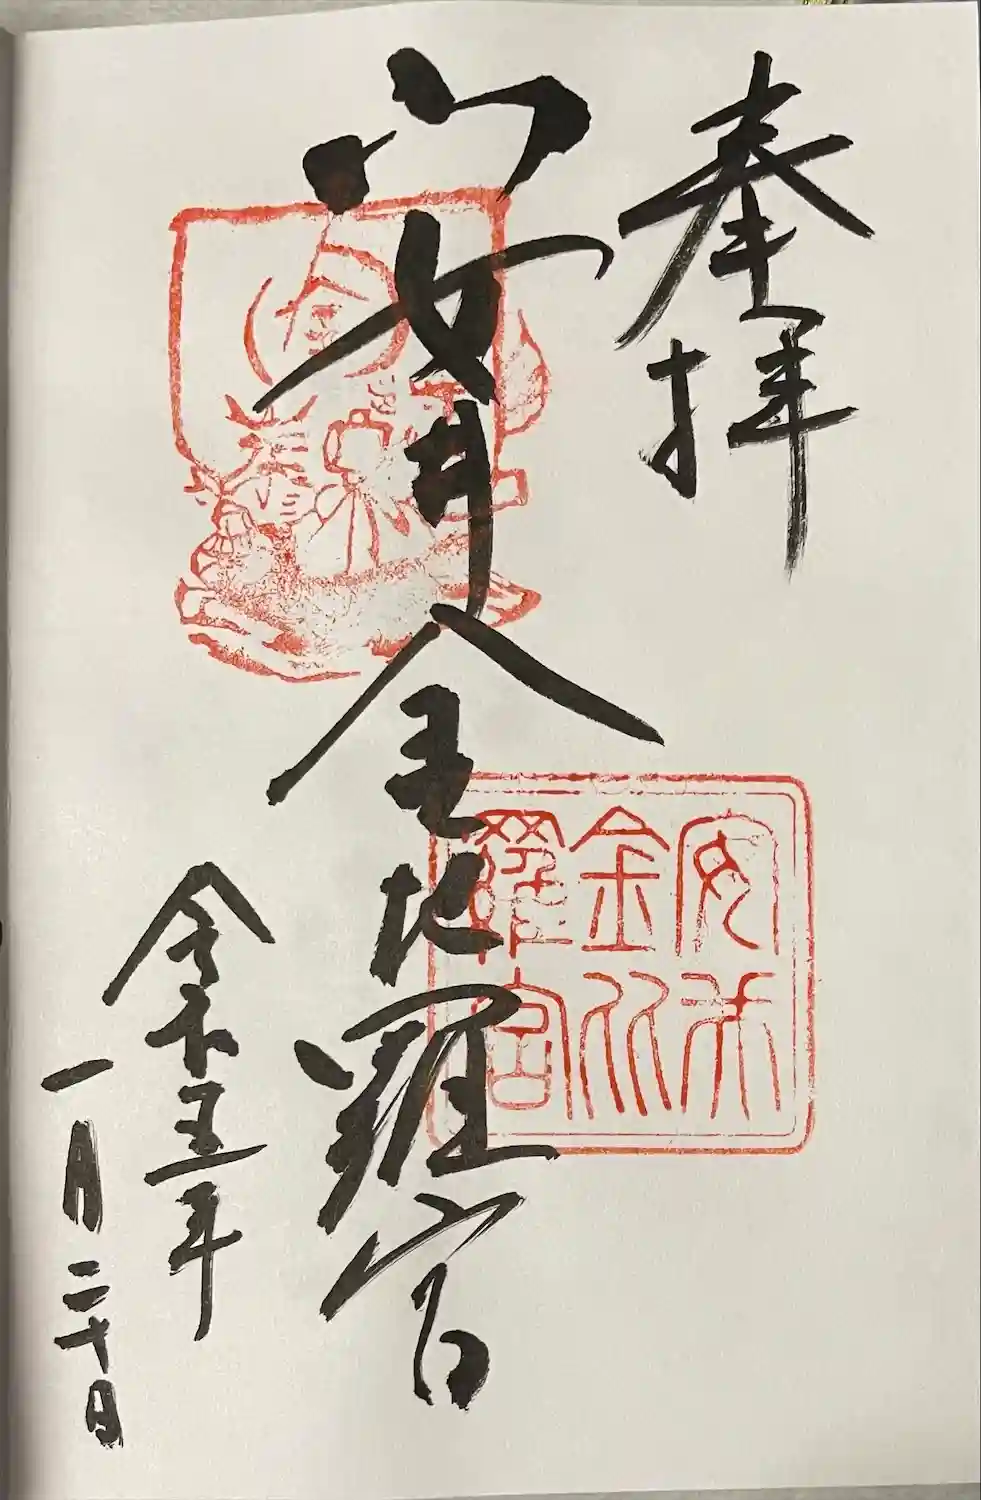 奉拝
安井金比羅宮
安井金比羅宮
令和五年
一月二十日